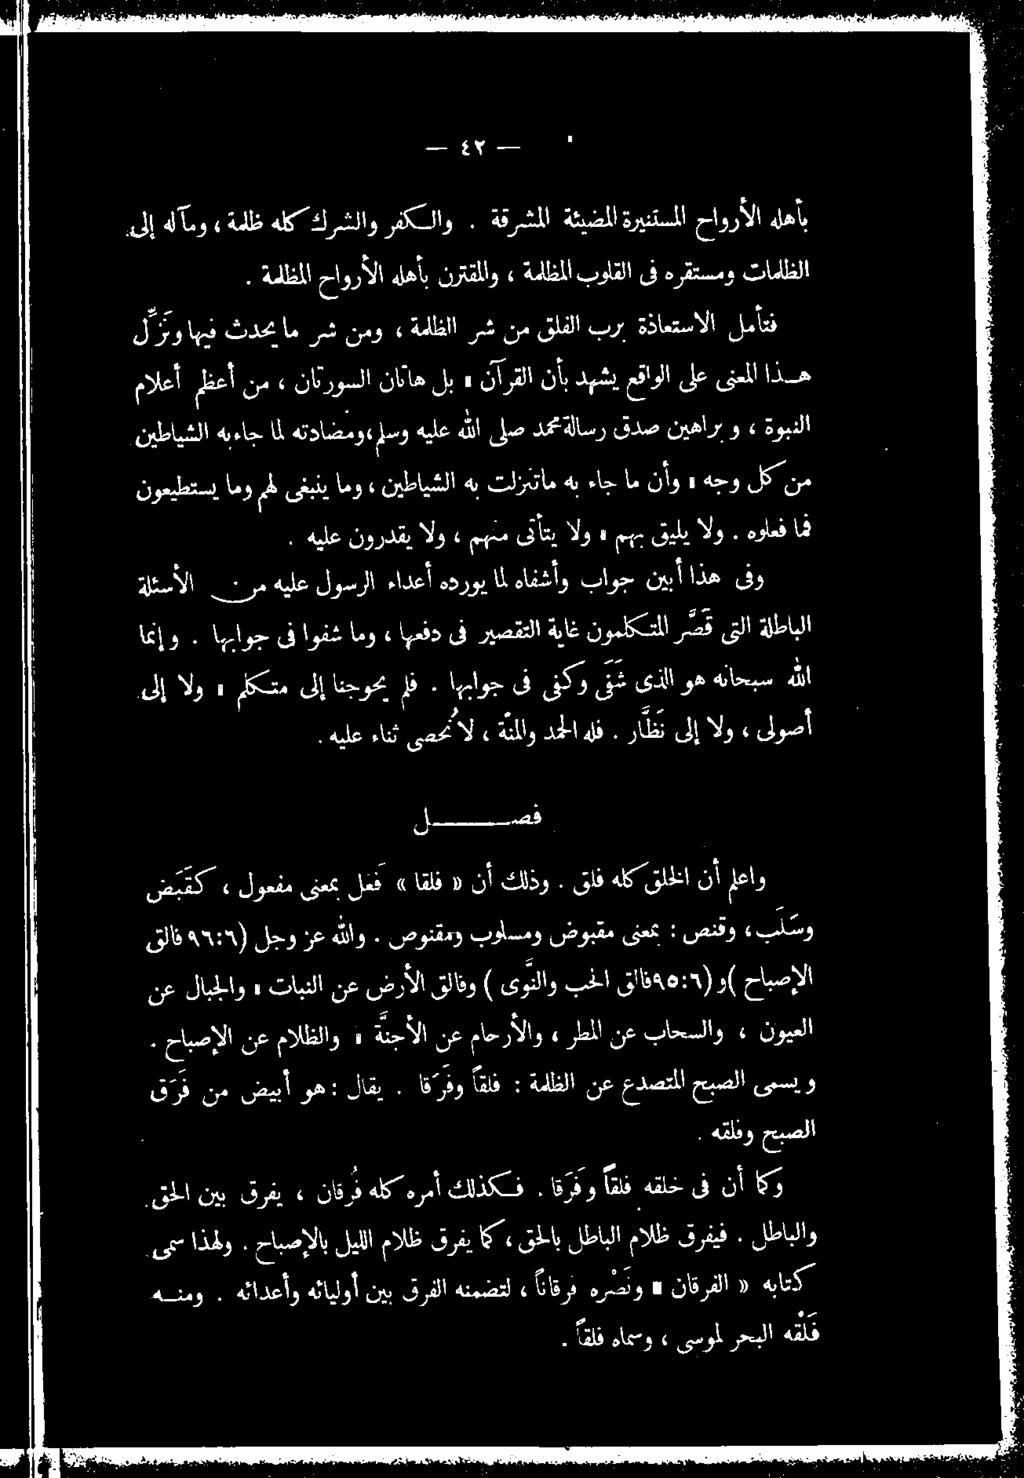 — ٤٢ —
بأهله الأرواح المستنيرة المضيئة المشرقة . والـكفر والشرك كله ظلمة ، ومآله إلى
الظلمات ومستقره فى القلوب المظلمة ، والمقترن بأهله الأرواح المظلمة .
فتأمل الاستعاذة برب الفلق من شر الظلمة ، ومن شر ما يحدث فيها ونَزِّل
هـذا المعنى على الواقع يشهد بأن القرآن ، بل هاتان السورتان ، من أعظم أعلام
النبوة ، وبراهين صدق رسالة محمد صلى الله عليه وسلم ، ومضادته لما جاء به الشياطين
من كل وجه ، وأن ما جاء به ما تنزلت به الشياطين ، وما ينبغى لهم وما يستطيعون
فما فعلوه . ولا يليق بهم ، ولا يتأتى منهم ، ولا يقدرون عليه .
وفى هذا أبين جواب وأشفاه لما يورده أعداء الرسول عليه من الأسئلة
الباطلة التى قَصَّر المتـكلمون غاية التقصير فى دفعها ، وما شفوا فى جوابها . وإنما
الله سبحانه هو الذى شَفَى وكفى فى جوابها . فلم يحوجنا إلى متـكلم ، ولا إلى
أصولى ، ولا إلى نَظَّار . فله الحمد والمنّة ، لا نُحصى ثناء عليه .
فصـــــل
واعلم أن الخلق كله فلق . وذلك أن « فلقا » فَعَل بمعنى مفعول ، كَقَبَض
وسَلَب ، وقنص : بمعنى مقبوض ومسلوب ومقنوص . والله عز وجل (٩٦:٦ فالق
الإصباح ) و (٩٥:٦ فالق الحب والنَّوى ) وفالق الأرض عن النبات ، والجبال عن
العيون ، والسحاب عن المطر ، والأرحام عن الأجنَّة ، والظلام عن الإصباح .
ويسمى الصبح المتصدع عن الظلمة : فلقاً وفَرَقا . يقال : هو أبيض من فَرَق
الصبح وفلقه .
وكما أن فى خلقه فلقاً وفَرَقا . فـكذلك أمره كله فُرقان ، يفرق بين الحق
والباطل . فيفرق ظلام الباطل بالحق ، كما يفرق ظلام الليل بالإصباح . ولهذا سمى
كتابه « الفرقان » ونَصْره فرقاناً ، لتضمنه الفرق بين أوليائه وأعدائه . ومنـه
فَلْقه البحر لموسى ، وسماه فلقاً .